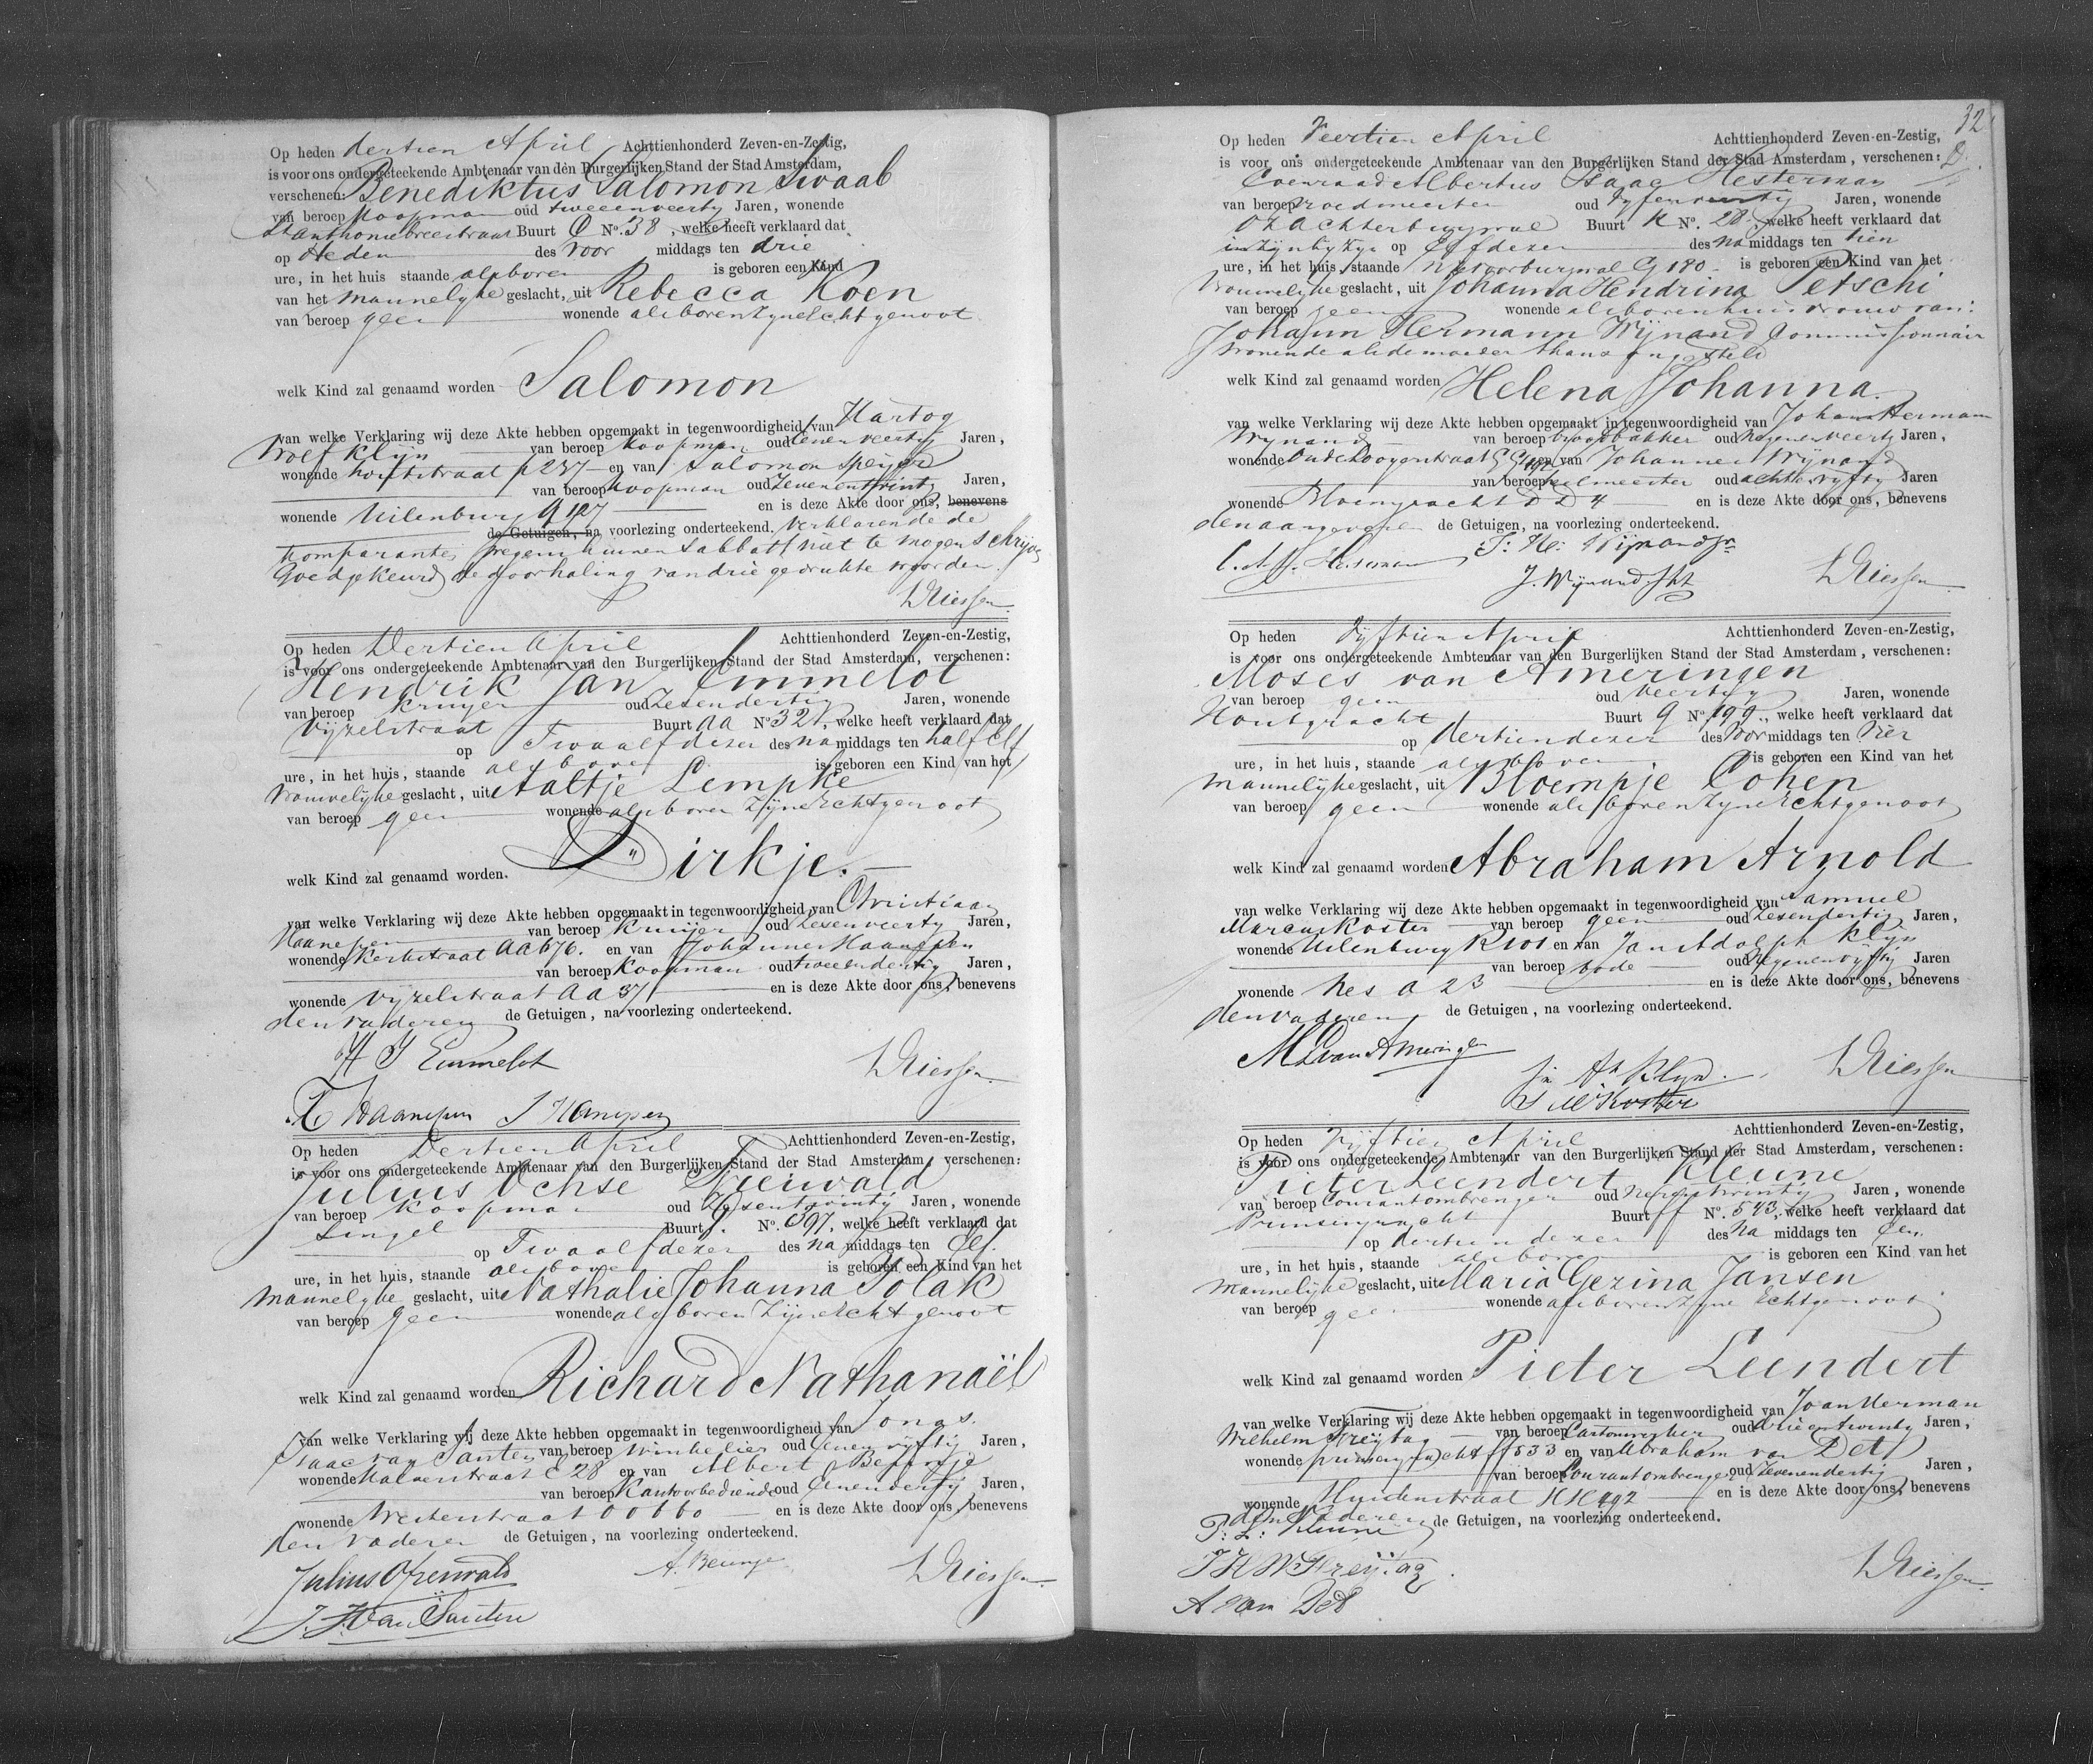 Op heden dertien April Achttienhonderd Zeven-en-Zestig,
is voor ons ondergeteekende Ambtenaar van den Burgerlijken Stand der Stad Amsterdam,
verschenen: Benediktus Salomon Swaab
van beroep Koopman oud tweeenveertig Jaren, wonende
St anthoniebreestraat Buurt O No. 38, welke heeft verklaard dat
op Heden des voor middags ten drie
ure, in het huis staande alsboven is geboren een Kind
van het mannelyke geslacht, uit Rebecca Koen
van beroep geen wonende alsboven zyne Echtgenoot
welk Kind zal genaamd worden Salomon
van welke Verklaring wij deze Akte hebben opgemaakt in tegenwoordigheid van Hartog
Wolf Klijn van beroep Koopman oud eenenveertig Jaren,
wonende houtstraat P 237 en van Salomon Speijer
van beroep Koopman oud Zevenentwintig Jaren,
wonende Uilenburg Q 127 en is deze Akte door ons, benevens
de Getuigen, na voorlezing onderteekend. verklarende de
komparanten wegens hunnen Sabbath niet te mogen schrijven
Goedgekeurd de doorhaling van drie gedrukte woorden.
Op heden Dertien April Achttienhonderd Zeven-en-Zestig,
is voor ons ondergeteekende Ambtenaar van den Burgerlijken Stand der Stad Amsterdam, verschenen:
Hendrik Jan Emmelot
van beroep Kruijer oud Zesendertig Jaren, wonende
Vijzelstraat Buurt AA No 321, welke heeft verklaard dat
op Twaalf dezer des na middags ten half elf
ure, in het huis, staande alsboven is geboren een Kind van het
vrouwelijke geslacht, uit Aaltje Lempke
van beroep geen wonende alsboven zijne Echtgenoot
welk Kind zal genaamd worden. Dirkje.
van welke Verklaring wij deze Akte hebben opgemaakt in tegenwoordigheid van Christiaan
Haanepen van beroep Kruijer oud Zesenveertig Jaren,
wonende Kerkstraat AA 676. en van Johannes Haanepen
van beroep Koopman oud tweeendertig Jaren,
wonende Vijzelstraat AA 37 en is deze Akte door ons, benevens
den vader en de Getuigen, na voorlezing onderteekend.
H J Emmelot
C Haanepen J Hanepen
Op heden Dertien April Achttienhonderd Zeven-en-Zestig,
is voor ons ondergeteekende Ambtenaar van den Burgerlijken Stand der Stad Amsterdam, verschenen:
Julius Ochse
van beroep Koopman oud Zesentwintig Jaren, wonende
Singel Buurt No. 397, welke heeft verklaard dat
op Twaalf dezer des na middags ten Elf
ure, in het huis, staande alsboven is geboren een Kind van het
mannelyke geslacht, uit Nathalie Johanna Polak
van beroep geen wonende alsboven Zijne Echtgenoot
welk Kind zal genaamd worden Richard Nathanaël
van welke Verklaring wij deze Akte hebben opgemaakt in tegenwoordigheid van Jonas
Isaac van Santen van beroep Winkelier oud Eenenvijftig Jaren,
wonende Kalverstraat E 28 en van Albert Beunje
van beroep Kantoorbediende oud Eenendertig Jaren,
wonende Weesperstraat en is deze Akte door ons, benevens
den Vader en de Getuigen, na voorlezing onderteekend.
A. Beunje
J. J. van Santen
32
Op heden Veertien April Achttienhonderd Zeven-en-Zestig,
is voor ons ondergeteekende Ambtenaar van den Burgerlijken Stand der Stad Amsterdam, verschenen:
Coenraad Albertus Isaac Hesterman
van beroep vroedmeester oud Jaren, wonende
OZ Achterburgwal Buurt K No. 28, welke heeft verklaard dat
in zijn bijzijn op Elf dezer des na middags ten tien
ure, in het huis, staande NZ Voorburgwal G 180 is geboren een Kind van het
Vrouwelijke geslacht, uit Johanna Hendrina Petschi
van beroep geen wonende alsboven huisvrouw van
Johann Hermann Wijnand Commissionnair
wonende als de moeder thans ongesteld
welk Kind zal genaamd worden Helena Johanna.
van welke Verklaring wij deze Akte hebben opgemaakt in tegenwoordigheid van Johann Herman
Wijnand van beroep broodbakker oud Negenenveertig Jaren,
wonende Oude Looyerstraat en van Johannes Wijnand
van beroep oud achtenvijftig Jaren
wonende Bloemgracht DD 4 en is deze Akte door ons, benevens
den aangever en de Getuigen, na voorlezing onderteekend.
J: H: Wijnand Jr
J. Wijnand
Op heden Vijftien April Achttienhonderd Zeven-en-Zestig,
is voor ons ondergeteekende Ambtenaar van den Burgerlijken Stand der Stad Amsterdam, verschenen:
Moses van Ameringen
van beroep geen oud veertig Jaren, wonende
Houtgracht Buurt Q No. 199, welke heeft verklaard dat
op dertien dezer des Voor middags ten Vier
ure, in het huis, staande alsboven is geboren een Kind van het
mannelijke geslacht, uit Bloempje Cohen
van beroep geen wonende alsboven zyne Echtgenoot
welk Kind zal genaamd worden Abraham Arnold
van welke Verklaring wij deze Akte hebben opgemaakt in tegenwoordigheid van Samuel
Marcus Koster van beroep geen oud Zesendertig Jaren,
wonende Uilenburg R 101 en van Jan Adolph Klijn
van beroep bode oud Negenenvijftig Jaren
wonende Nes A 23 en is deze Akte door ons, benevens
den vader en de Getuigen, na voorlezing onderteekend.
M van Ameringen
Jn Ah Klijn.
S M Koster
Op heden Vijftien April Achttienhonderd Zeven-en-Zestig,
is voor ons ondergeteekende Ambtenaar van den Burgerlijken Stand der Stad Amsterdam, verschenen:
Pieter Leendert Kleune
van beroep Courantombrenger oud Negenentwintig Jaren, wonende
Prinsengracht Buurt ff No. 543, welke heeft verklaard dat
op dertien dezer des na middags ten Een
ure, in het huis, staande alsboven is geboren een Kind van het
mannelijke geslacht, uit Maria Gezina Jansen
van beroep geen wonende alsboven zyne Echtgenoot
welk Kind zal genaamd worden Pieter Leendert
van welke Verklaring wij deze Akte hebben opgemaakt in tegenwoordigheid van Joan Herman
Wilhelm Freijtag van beroep Cartonwerker oud drieentwintig Jaren,
wonende prinsengracht ff 533 en van Abraham van Det
van beroep Courantombrenger oud Zevenendertig Jaren,
wonende Huidenstraat HH 492 en is deze Akte door ons, benevens
den Vader en de Getuigen, na voorlezing onderteekend.
P: L: Kleune
J H W Freijtag
A van Det